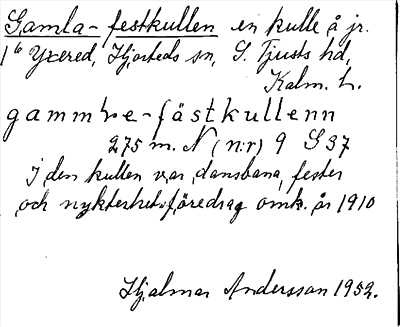 Gamla-festkullen en kulle å jr.
1⁶ Yxered, Hjorteds sn, S. Tjusts hd,
Kalm. L.
gamm e-fästkullenn
275 m. N (n:r) 9 S 37
I den kullen var dansbana, fester
och nykterhetsföredrag omk. år 1910
Hjalmar Andersson 1952.